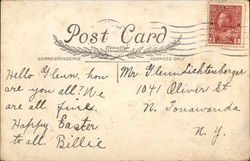 Post Card
CORRESPONDENCE
ADDRESS ONLY
Hello Glenn, how
are you all? We
are all fine.
Happy Easter
to all. Billie
Mr Glenn Lichtenberger
1041 Oliver St
N. Tonawanda
N. Y.